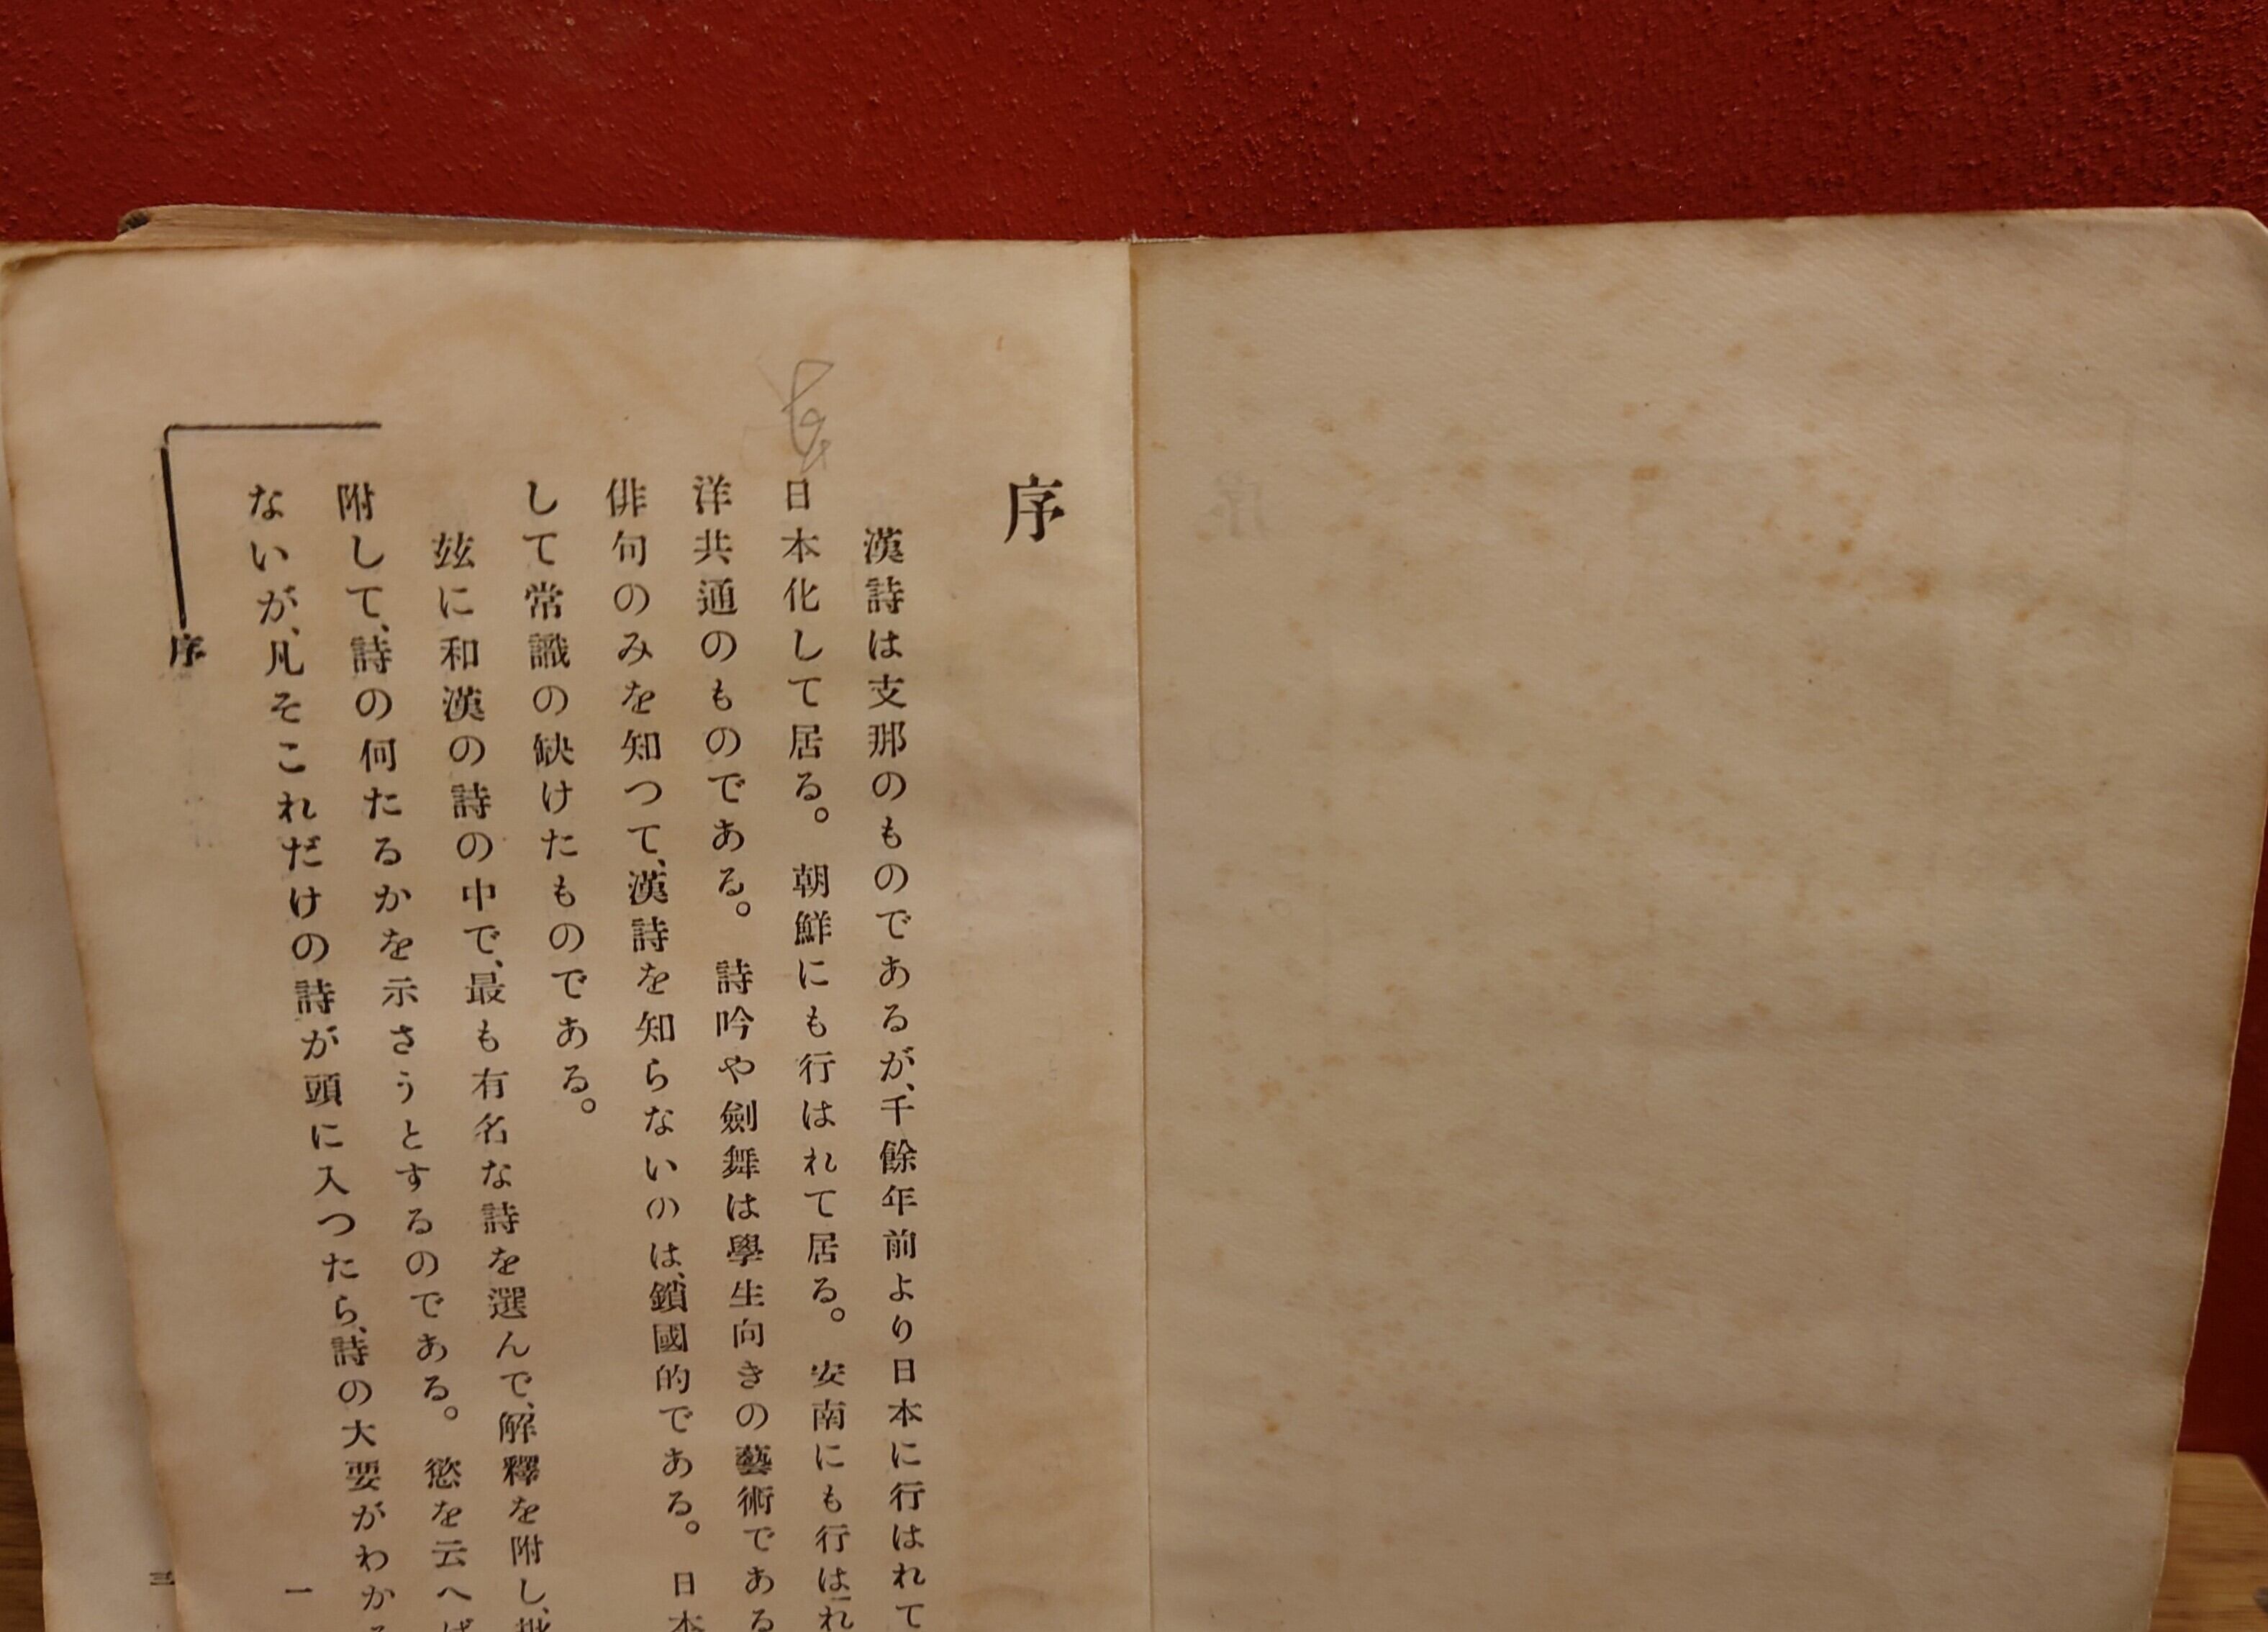 序
漢詩は支那のものであるが、千餘年前より日本に行はれて
日本化して居る。朝鮮にも行はれて居る。安南にも行はれ
洋共通のものである。詩吟や劍舞は學生向きの藝術である
俳句のみを知つて、漢詩を知らないのは、鎖國的である。日本
して常識の缺けたものである。
玆に和漢の詩の中で、最も有名な詩を選んで、解釋を附し、
附して、詩の何たるかを示さうとするのである。慾を云へば
ないが、凡そこれだけの詩が頭に入つたら、詩の大要がわかる
序
一
三